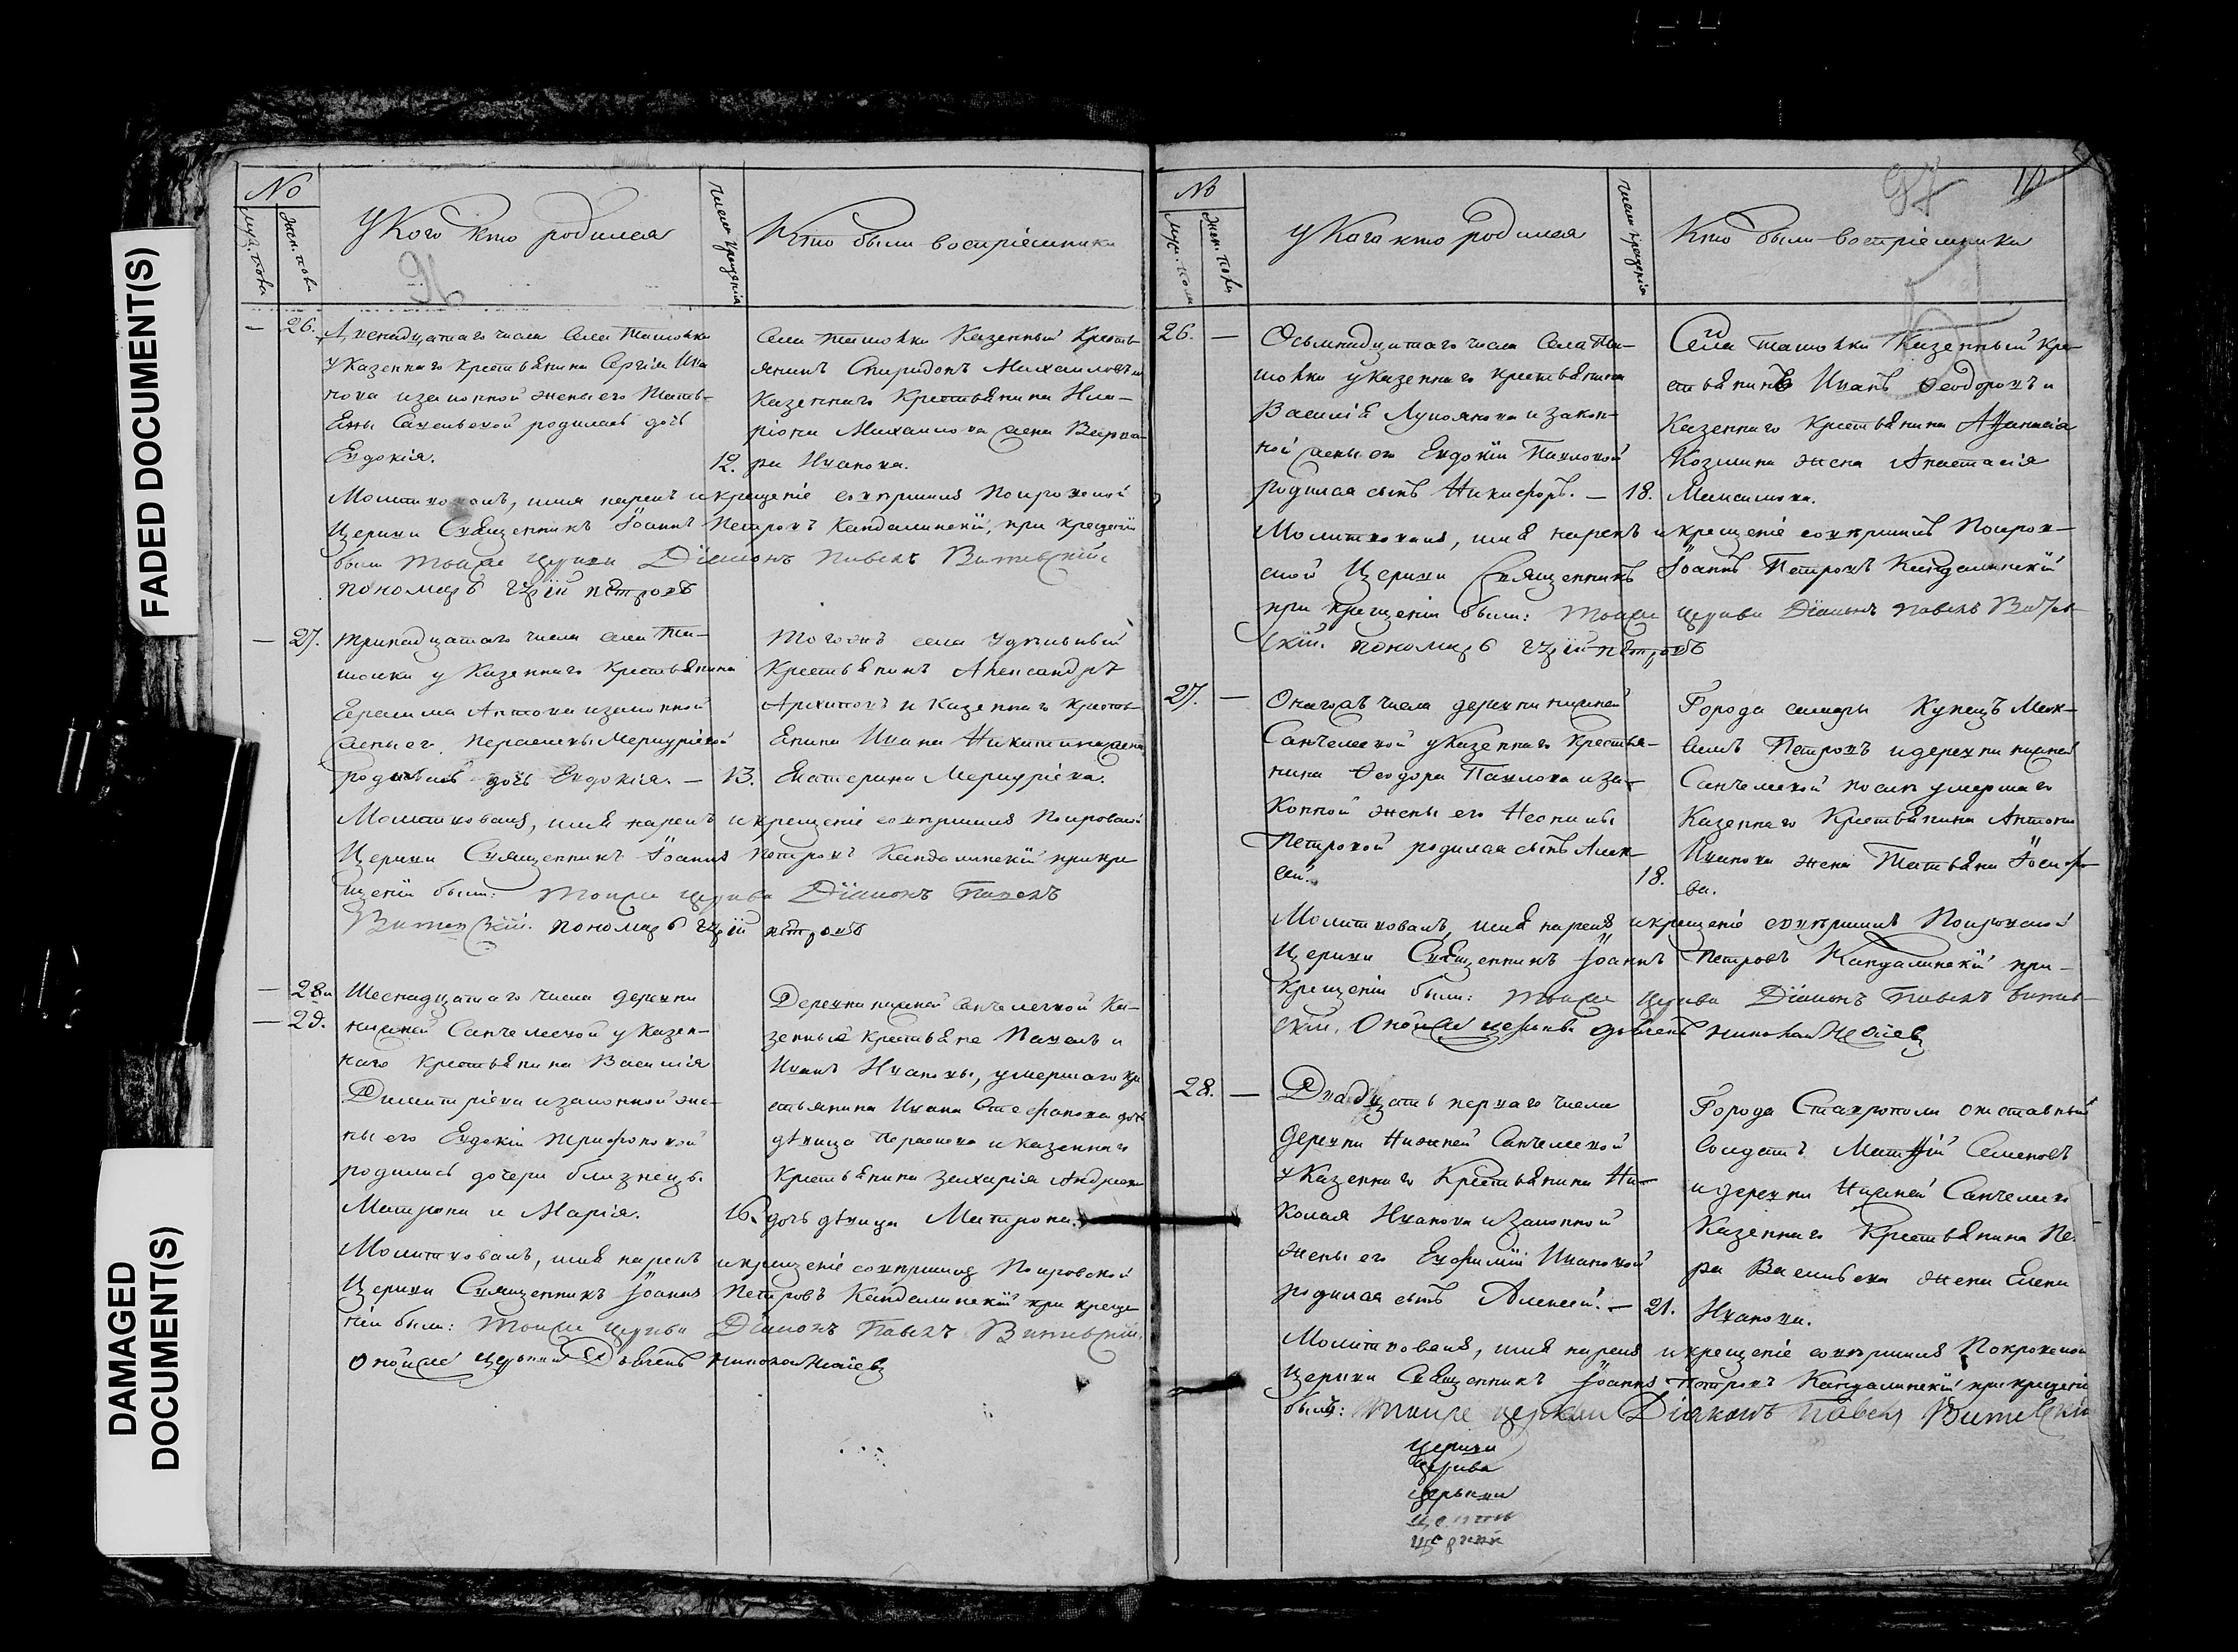 FADED DOCUMENT(S)
DAMAGED
DOCUMENT(S)
№
муж. пола
жен. пола
У Кого кто родился
число крещенія
Кто были воспріемники
96
26.
Двенадцатаго числа села Ташолки
у Казеннаго крестьянина Сергія Ива
нова и законной жены его Тать-
яны Савельевой родилась дочь
Евдокія.
12.
Села Ташолки Казенный Кресть
янинъ Спиридонъ Михаиловъ и
Казеннаго Крестьянина Ила-
ріона Михаилова жена Варва-
ра Иванова.
Молитвовалъ, имя нарекъ и крещеніе совершилъ Покровской
Церкви Священникъ Іоаннъ Петровъ Кандалинскій, при крещеніи
были тойже церкви Діаконъ Павелъ
пономарь Петровъ
27.
тринадцатаго числа села Та-
шолки у Казеннаго Крестьянина
Герасима Антонова и законной
жены его Парасковьи Меркуріевой
родилась дочь Евдокія. — 13.
Тогожъ села Удѣльный
Крестьянинъ Александръ
Архиповъ и Казеннаго Кресть
янина Ивана Никитина жена
Екатерина Меркуріева.
Молитвовалъ, имя нарекъ и крещеніе совершилъ Покровской
Церкви Священникъ Іоаннъ Петровъ Кандалинскій при кре
щеніи были: тойже церкви Діаконъ Павелъ
пономарь Петровъ
28 и
29.
Шеснадцатаго числа деревни
нижней Санчелеевой у Казен-
наго крестьянина Василія
Димитріева и законной же-
ны его Евдокіи Трифоновой
родились дочери близнецы
Матрона и Марія. 16.
Деревни нижней Санчелеевой Ка-
зенные Крестьяне Павелъ и
Иванъ Ивановы, умершаго кре
стьянина Ивана Стефанова дочь
дѣвица Параскева и казеннаго
Крестьянина Захарія Андреева
дочь дѣвица Матрона.
Молитвовалъ, имя нарекъ и крещеніе совершилъ Покровской
Церкви Священникъ Іоаннъ Петровъ Кандалинскій при креще
ніи были: тойже церкви Діаконъ Павелъ
Оной же церкви Дьячекъ Николай
№
муж. пола
жен. пола
У Кого кто родился
число крещенія
Кто были воспріемники
97
26. —
Осьмнадцатаго числа села Та-
шолки у казеннаго крестьянина
Василія Лукоянова и закон-
ной жены его Евдокіи Павловой
родился сынъ Никифоръ. — 18.
Села Ташолки Казенный Кре
стьянинъ Иванъ Феодоровъ и
Казеннаго крестьянина Аѳанасія
Козмина жена Анастасія
Максимова.
Молитвовалъ, имя нарекъ и крещеніе совершилъ Покров-
ской Церкви Священникъ Іоаннъ Петровъ Кандалинскій
при крещеніи были: тойже церкви Діаконъ Павелъ
пономарь Петровъ
27. —
Онагожъ числа деревни нижней
Санчелеевой у Казеннаго Крестья-
нина Феодора Павлова и за-
конной жены его Неонилы
Петровой родился сынъ Алек
сей. 18.
Города самары Купецъ Мак-
симъ Петровъ и деревни нижней
Санчелеевой послѣ умершаго
Казеннаго Крестьянина Антона
Иванова жена Татьяна Іосифо
ва.
Молитвовалъ, имя нарекъ и крещеніе совершилъ Покровской
Церкви Священникъ Іоаннъ Петровъ Кандалинскій при-
крещеніи были: тойже Церкви Діаконъ Павелъ
Оной же церкви дьячекъ Николай
28. —
Двадцать перваго числа
деревни Нижней Санчелеевой
у Казеннаго Крестьянина Ни-
колая Иванова и Законной
жены его Евфиміи Ивановой
родился сынъ Алексей. — 21.
Города Ставрополя отставный
Солдатъ Матѳій Семеновъ
и деревни Нижней Санчелеев
Казеннаго Крестьянина
Васильева жена Елена
Иванова.
Молитвовалъ, имя нарекъ и крещеніе совершилъ Покровской
Церкви Священникъ Іоаннъ Петровъ Кандалинскій при крещеніи
былъ: тойже церкви Діаконъ Павелъ
Церкви
Церква
церькви